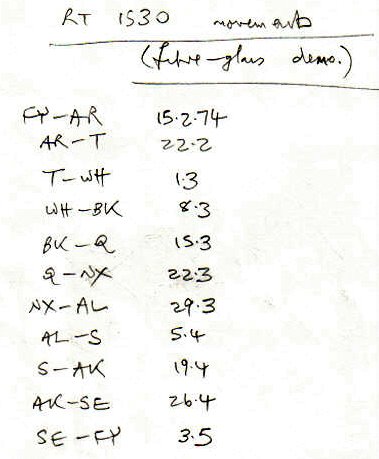 RT 1530 movements
(fibre-glass demo.)
FY-AR 15.2.74
AR-T 22.2
T-WH 1.3
WH-BK 8.3
BK-Q 15.3
Q-NX 22.3
NX-AL 29.3
AL-S 5.4
S-AK 19.4
AK-SE 26.4
SE-FY 3.5